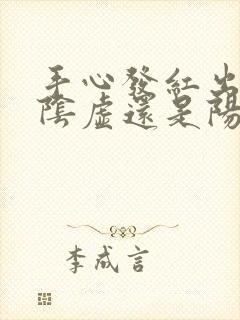 手心發紅出
陰虛還是陽
李成言